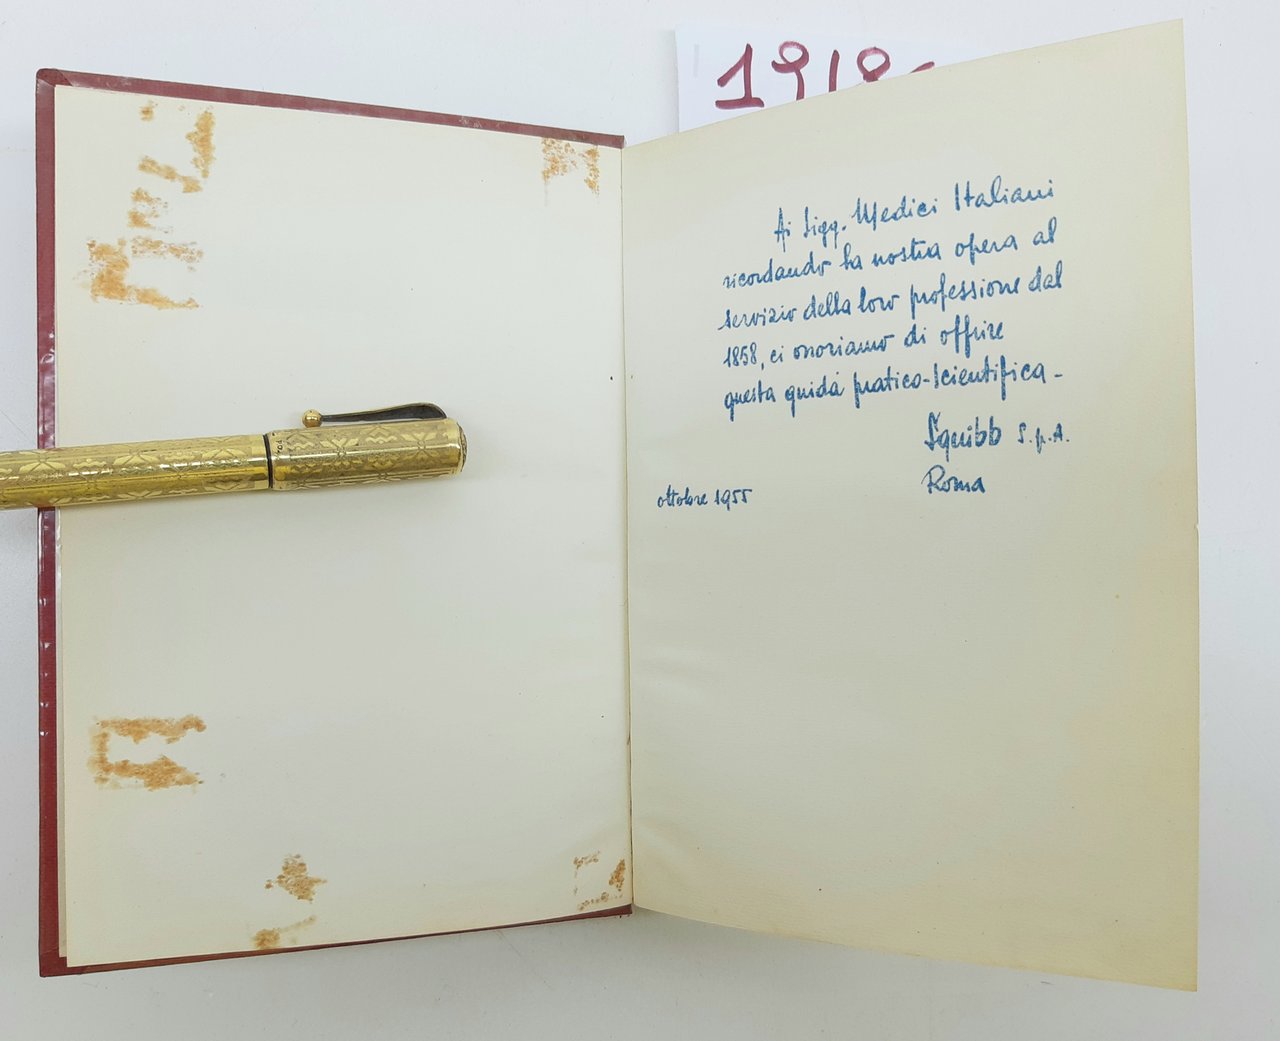 Ai Sigg. Medici Italiani
ricordando la nostra opera al
servizio della loro professione dal
1858, ci onoriamo di offrire
questa guida pratico-scientifica -
Squibb S.p.A.
Roma
ottobre 1955